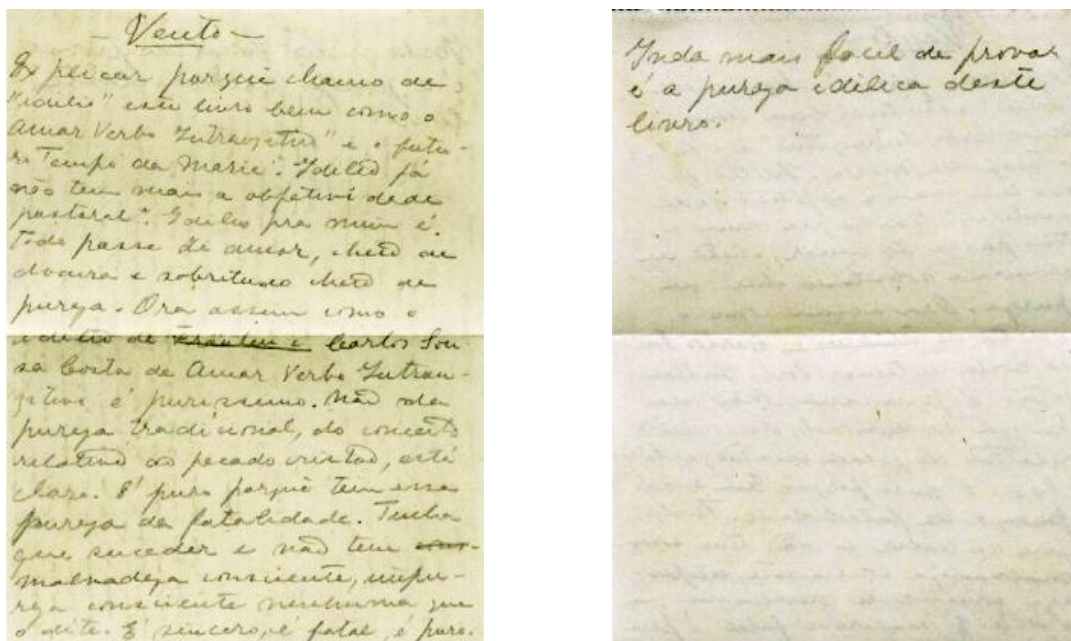 — Vento —
Explicar porquê chamo de
"idilio" este livro bem como o
Amar Verbo Intransitivo" e o futu-
ro Tempo da Maria". Idilio já
não tem mais a objetividade
pastoral". Idilio pra mim é
Todo passe de amor, cheio de
doçura e sobretudo cheio de
pureza. Ora assim como o
idilio de Fräulein e Carlos Sou-
sa Costa de Amar Verbo Intran-
sitivo é purissimo. Não da
pureza tradicional, do conceito
relativo ao pecado cristão, está
claro. É puro porquê tem essa
pureza da fatalidade. Tinha
que suceder e não tem
malvadeza consciente, impu-
reza consciente nenhuma que
o dite. É sincero, é fatal, é puro.
Inda mais facil de provar
é a pureza idilica deste
livro.